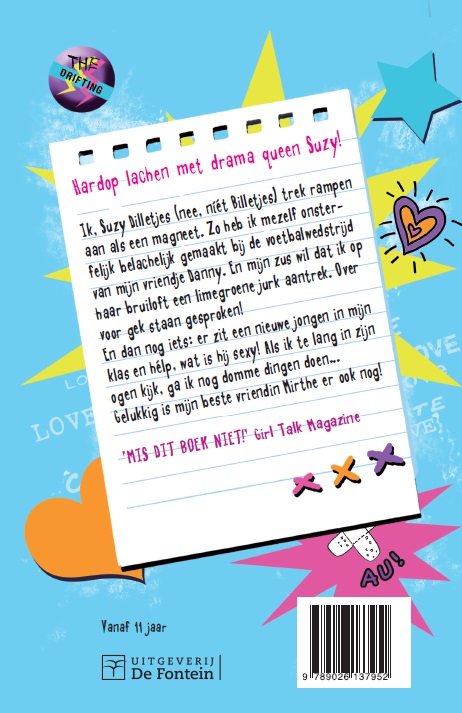 THE
DRIFTING
Hardop lachen met drama queen Suzy!
Ik, Suzy Dilletjes (nee, níét Billetjes) trek rampen
aan als een magneet. Zo heb ik mezelf onster-
felijk belachelijk gemaakt bij de voetbalwedstrijd
van mijn vriendje Danny. En mijn zus wil dat ik op
haar bruiloft een limegroene jurk aantrek. Over
voor gek staan gesproken!
En dan nog iets: er zit een nieuwe jongen in mijn
klas en hélp, wat is hij sexy! Als ik te lang in zijn
ogen kijk, ga ik nog domme dingen doen...
Gelukkig is mijn beste vriendin Mirthe er ook nog!
'MIS DIT BOEK NIET!' Girl Talk Magazine
xxx
LOVE
LOVE
AU!
Vanaf 11 jaar
UITGEVERIJ
De Fontein
9 789026 137952